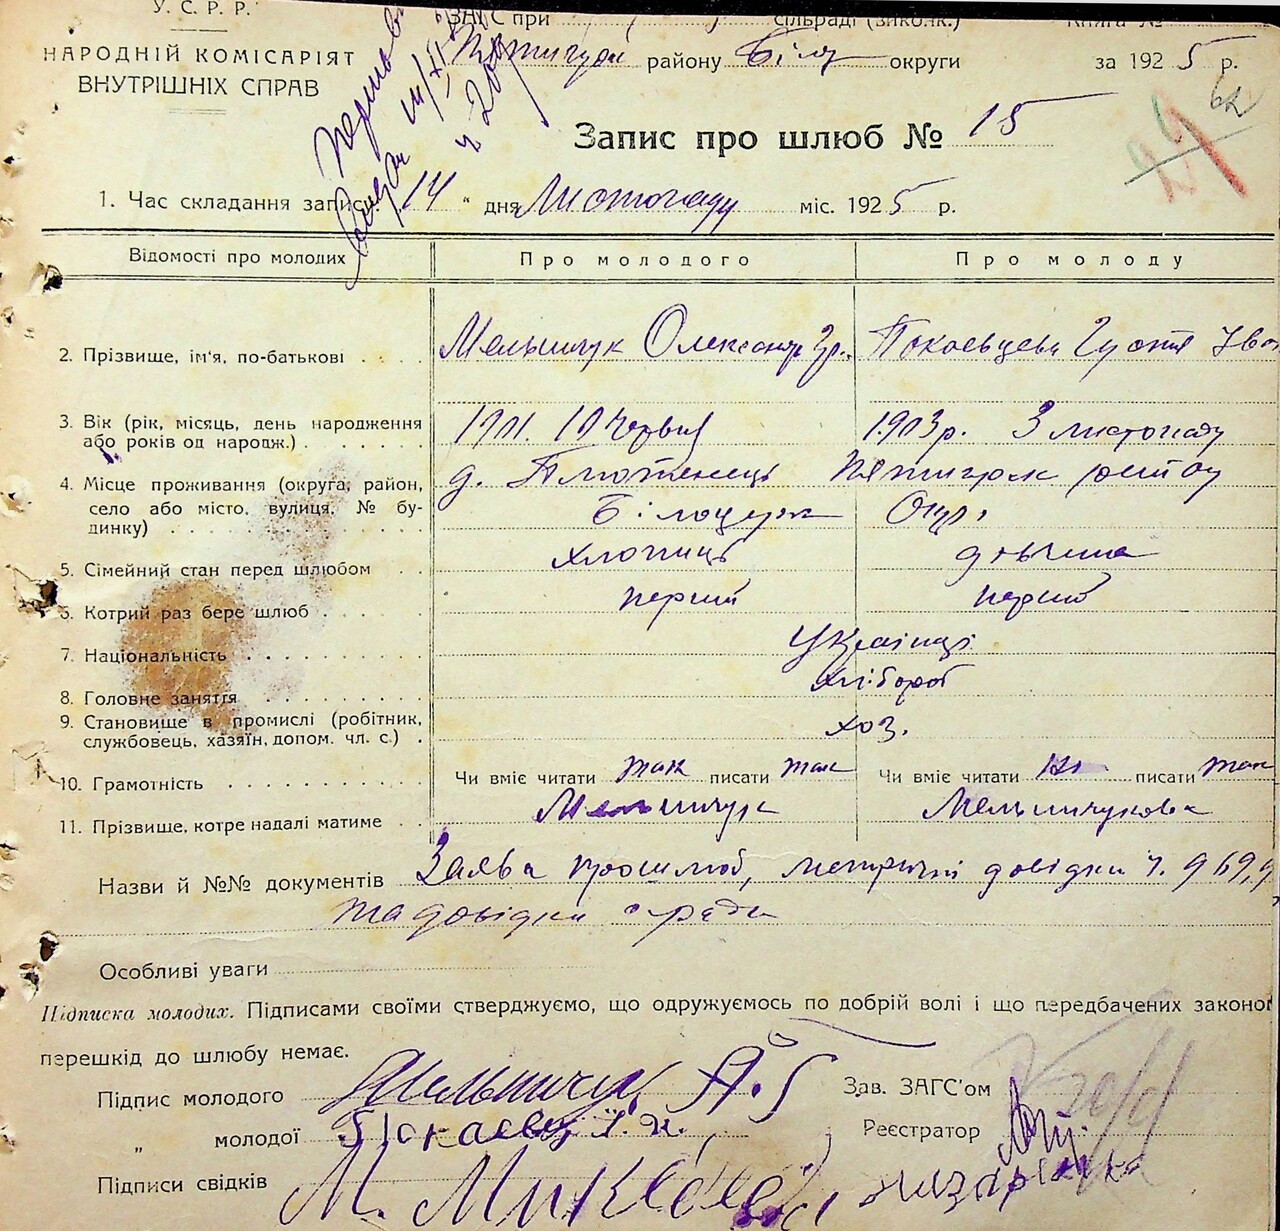 У.С.Р.Р.
НАРОДНІЙ КОМІСАРІЯТ
ВНУТРІШНІХ СПРАВ
ЗАГС при сільраді (викон.) Книга №
району Біл округи за 1925 р.
Запис про шлюб № 15
62
1. Час складання запису „14“ дня Листопаду міс. 1925 р.
Відомості про молодих Про молодого Про молоду
2. Прізвище, ім'я, по-батькові Мельничук Олександр Гр.
3. Вік (рік, місяць, день народження 1901. 10 Червня 1903 р. 3 листопаду
або років од народж.)
4. Місце проживання (округа, район,
село або місто, вулиця, № бу-
динку)
5. Сімейний стан перед шлюбом хлопиць дівчина
6. Котрий раз бере шлюб перший перший
7. Національність Українці
8. Головне заняття хлібороб
9. Становище в промислі (робітник,
службовець, хазяїн, допом. чл. с.) хоз.
10. Грамотність Чи вміє читати так писати так Чи вміє читати писати так
11. Прізвище, котре надалі матиме Мельничук Мельничукова
Назви й №№ документів Заява про шлюб, метричні довідки ч. 969,9
та довідки
Особливі уваги
Підписка молодих. Підписами своїми стверджуємо, що одружуємось по добрій волі і що передбачених законом
перешкід до шлюбу немає.
Підпис молодого Мельничук А. Г Зав. ЗАГС'ом
„ молодої Реєстратор
Підписи свідків М.